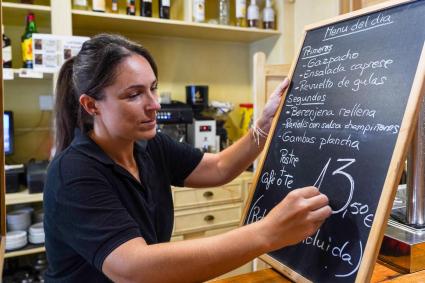 Menu del día
Primeros
- Gazpacho
- Ensalada caprese
- Revuelto de gulas
Segundos
- Berenjena rellena
con salsa champiñones
- Gambas plancha
Postre
Café o Te
13,50€
incluida)